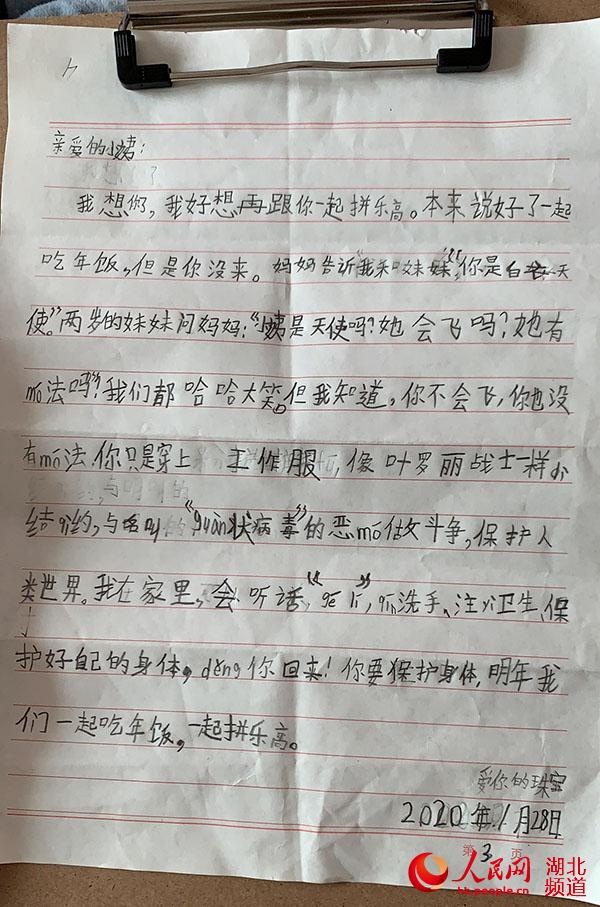 亲爱的小姨：
我想你，我好想再跟你一起拼乐高。本来说好了一起
吃年饭，但是你没来。妈妈告诉“我和妹妹”，“你是白衣天
使。”两岁的妹妹问妈妈：“小姨是天使吗？她会飞吗？她有
mó法吗？”我们都哈哈大笑。但我知道，你不会飞，你也没
有mó法，你只是穿上工作服，像叶罗丽战士一样
结约，与名叫“guān状病毒”的恶mó做斗争，保护人
类世界。我在家里，会听话，“gé lí”，qín洗手、注yì卫生、保
护好自己的身体，děng你回来！你要保护身体，明年我
们一起吃年饭，一起拼乐高。
爱你的珠宝
2020年1月28日
第3页
人民网 湖北频道
hb.people.cn